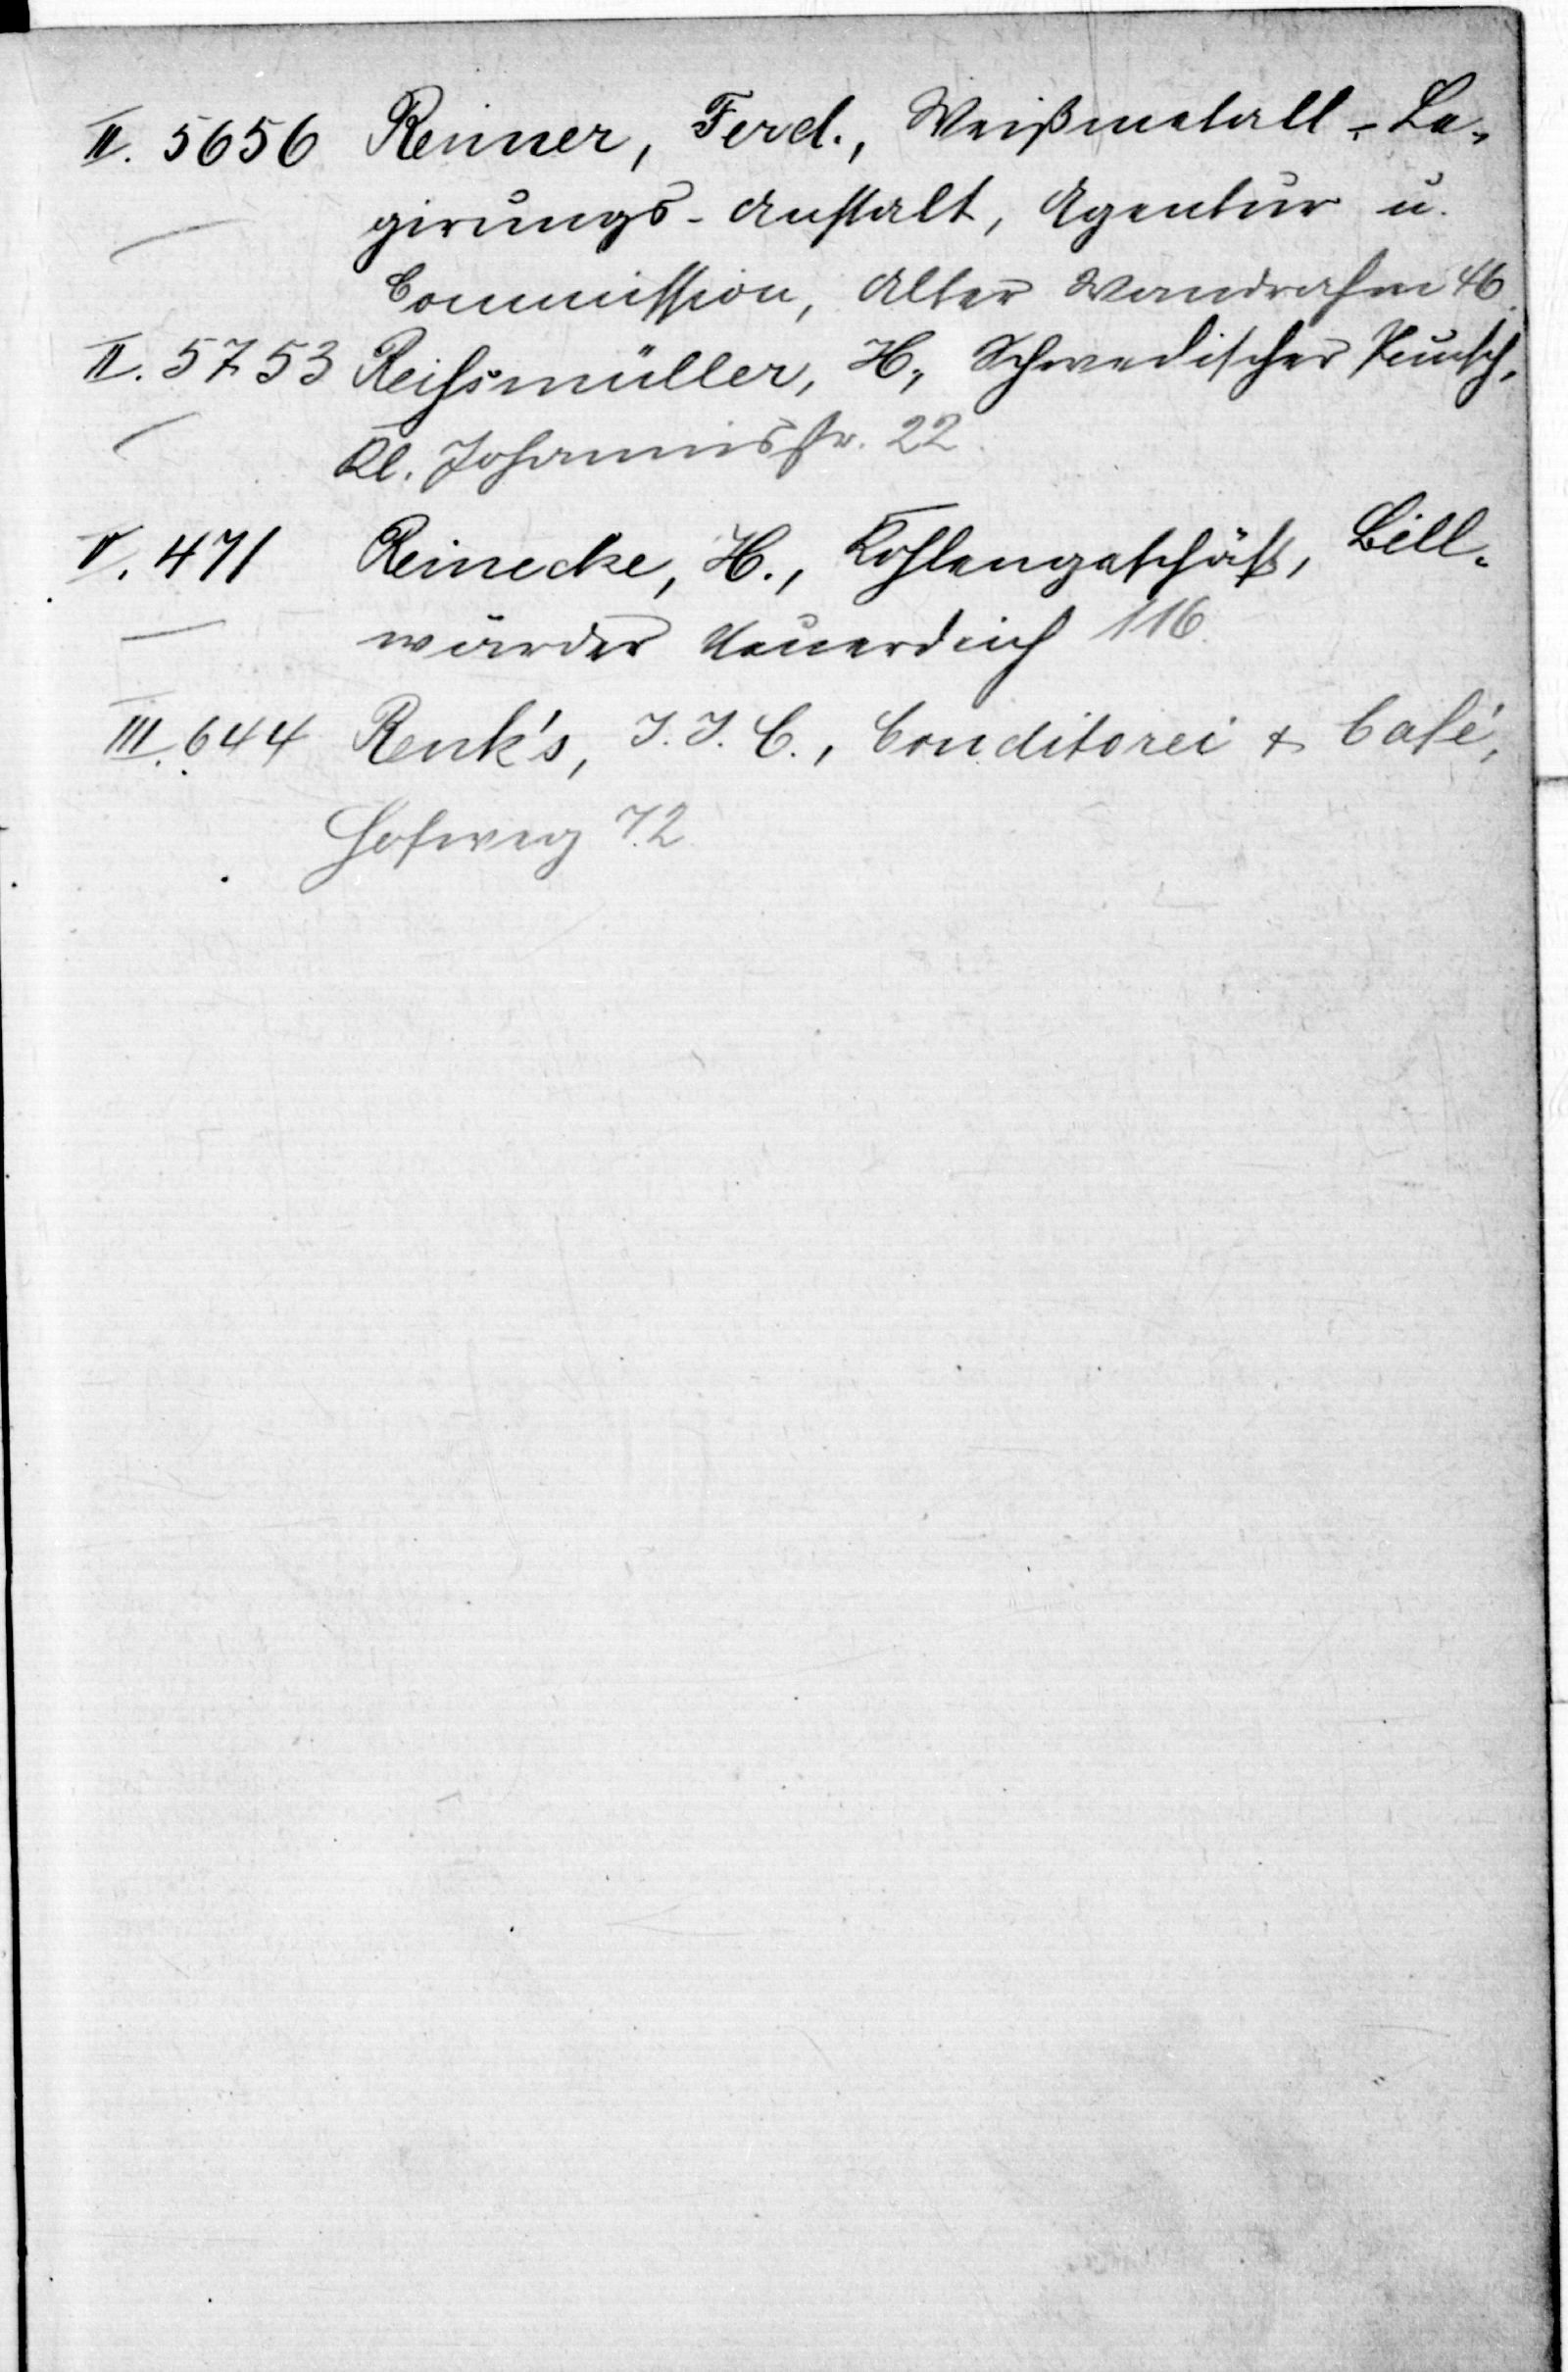 II. 5656 Renner, Ferd., Weißmetall-Le-
girungs-Anstalt, Agentur u.
Commission, Alter Wandrahm 46.
II. 5753 Reifsmüller, H., Schwedischer Punsch,
Kl. Johannisstr. 22.
V. 471 Reinecke, H., Kohlengeschäft, Bill-
wärder Neuerdeich 116.
III. 644 Renk's, J. J. C., Conditorei & Café,
Hofweg 72